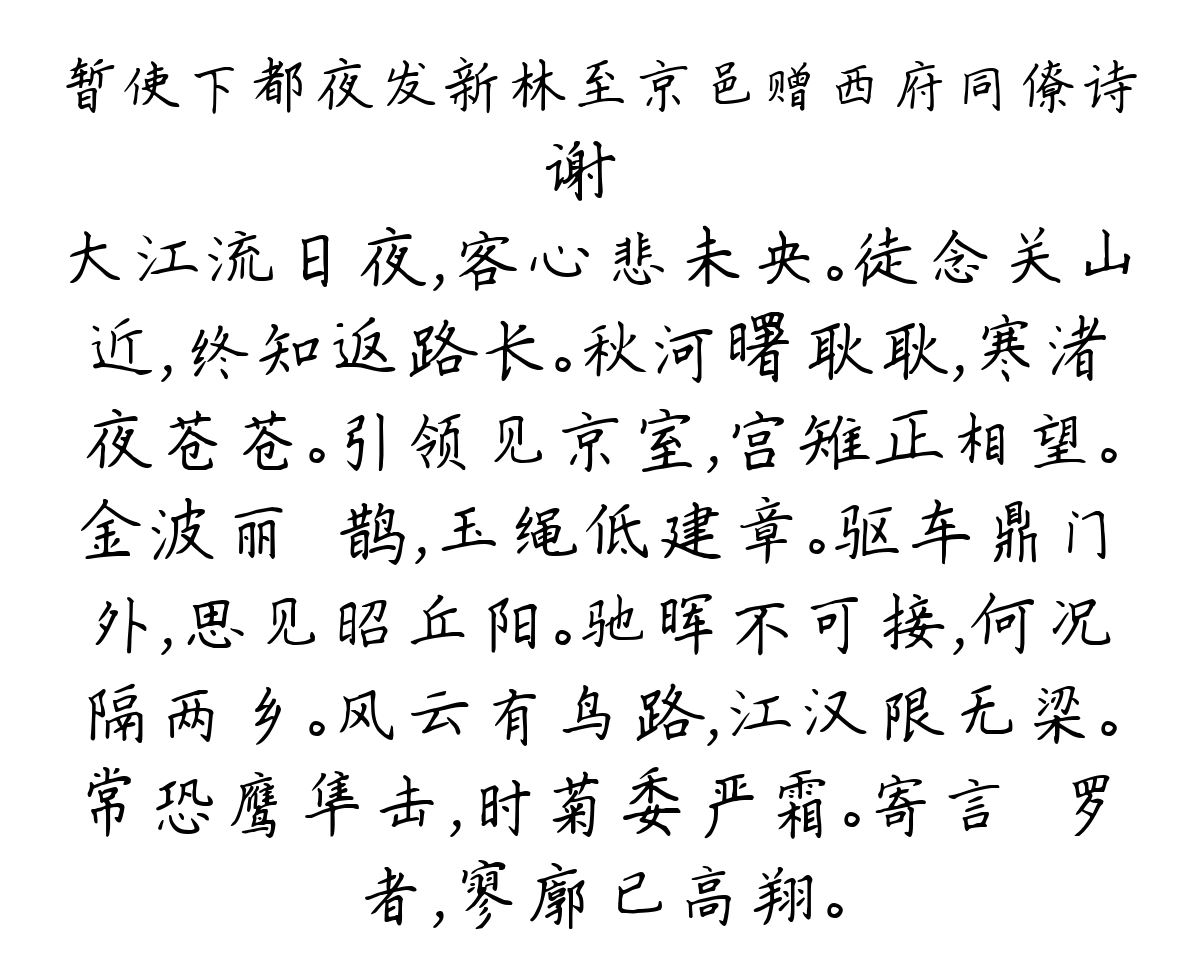 暂使下都夜发新林至京邑赠西府同僚诗
谢
大江流日夜,客心悲未央。徒念关山
近,终知返路长。秋河曙耿耿,寒渚
夜苍苍。引领见京室,宫雉正相望。
金波丽 鹊,玉绳低建章。驱车鼎门
外,思见昭丘阳。驰晖不可接,何况
隔两乡。风云有鸟路,江汉限无梁。
常恐鹰隼击,时菊委严霜。寄言 罗
者,寥廓已高翔。